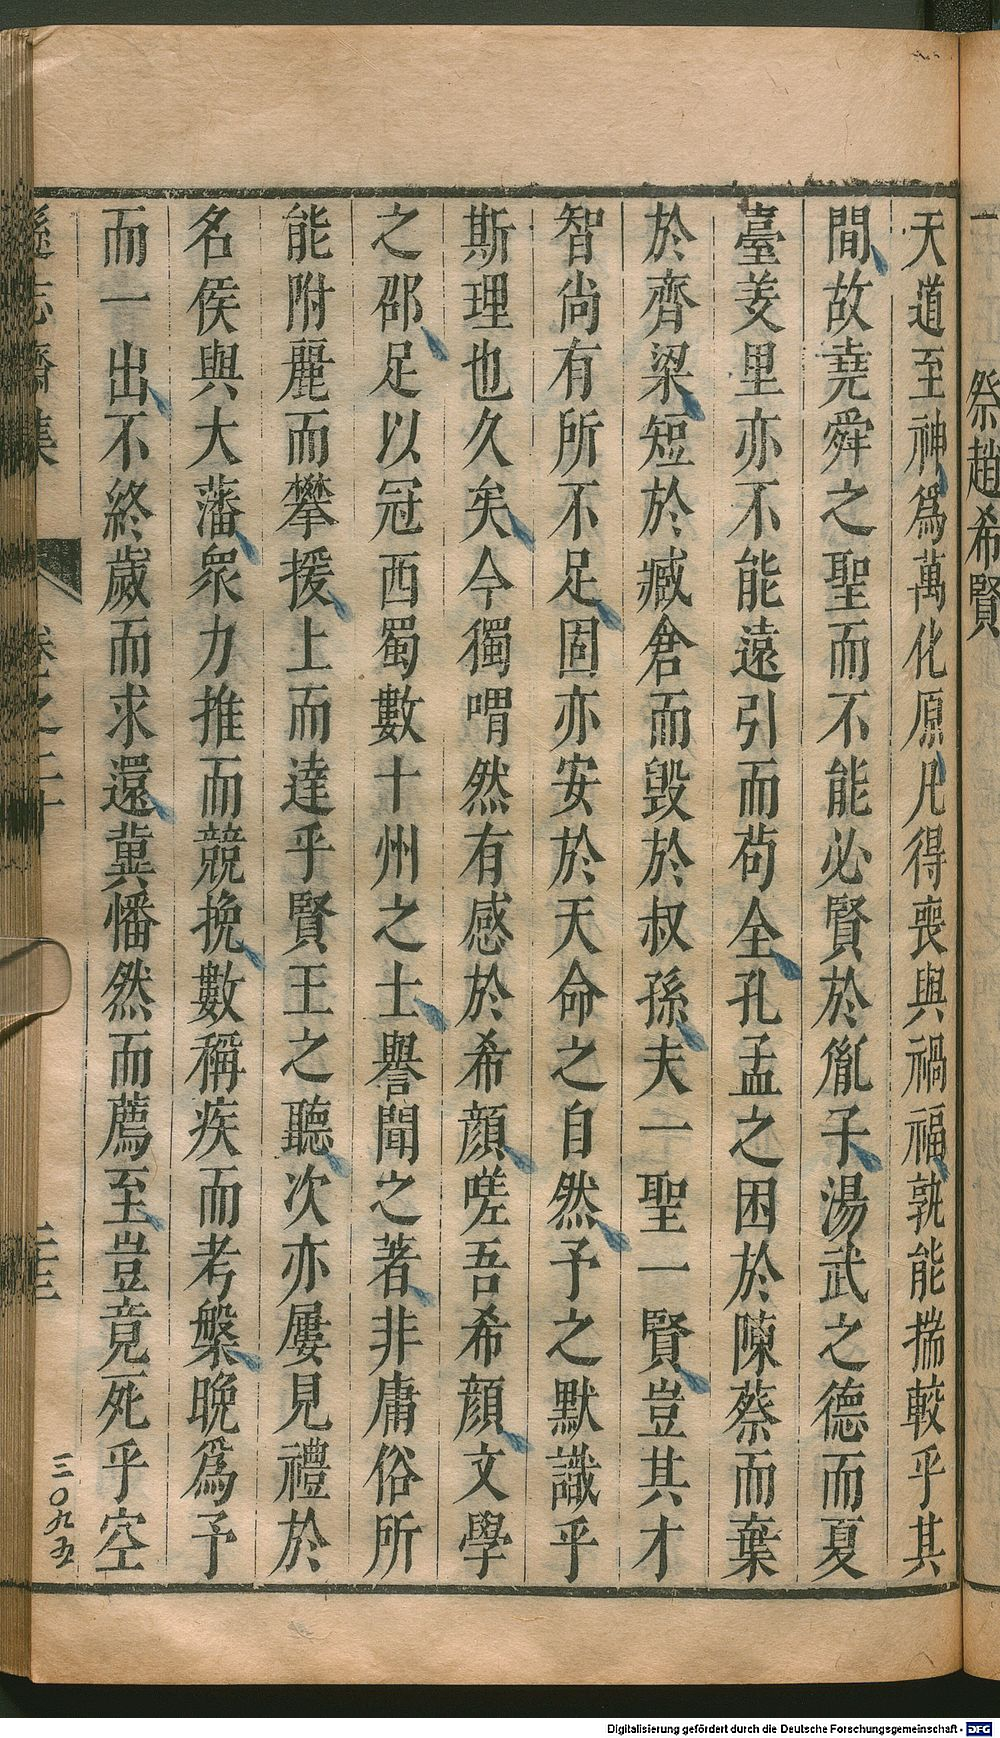 祭趙希賢
天道至神爲萬化原凡得喪與禍福孰能揣較乎其
間故堯舜之聖而不能必賢於胤子湯武之德而夏
臺羑里亦不能遠引而苟全孔孟之困於陳蔡而葉
於齊梁短於臧倉而毀於叔孫夫一聖一賢豈其才
智尚有所不足固亦安於天命之自然予之默識乎
斯理也久矣今獨喟然有感於希顏嗟吾希顏文學
之邵足以冠西蜀數十州之士譽聞之著非庸俗所
能附麗而攀援上而達乎賢王之聽次亦屢見禮於
名侯與大藩衆力推而競挽數稱疾而考槃晚爲予
而一出不終歲而求還冀幡然而薦至豈竟死乎空
遜志齋集 卷之二十
三〇九五
Digitalisierung gefördert durch die Deutsche Forschungsgemeinschaft - DFG